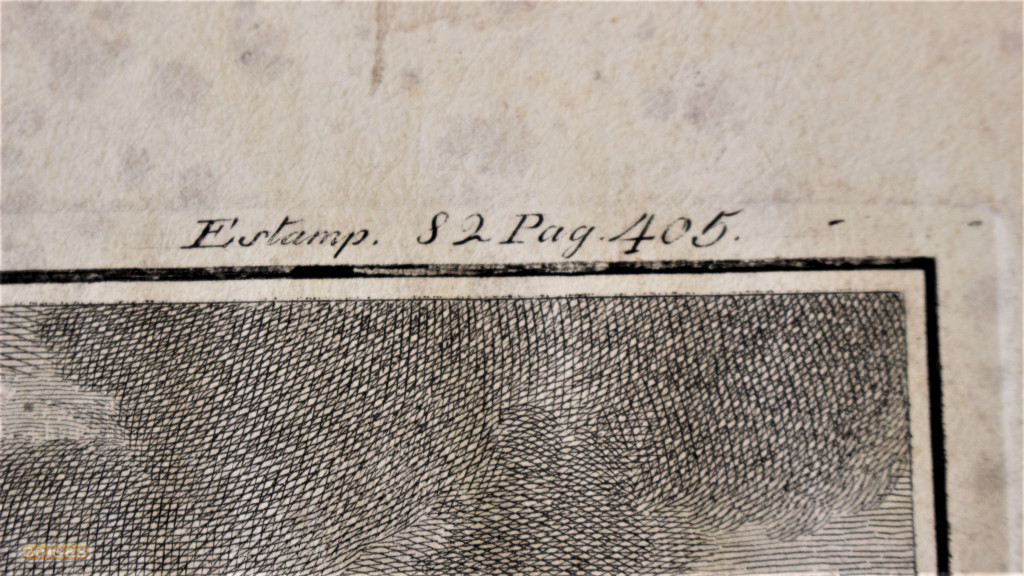 Estamp. 82 Pag. 405.